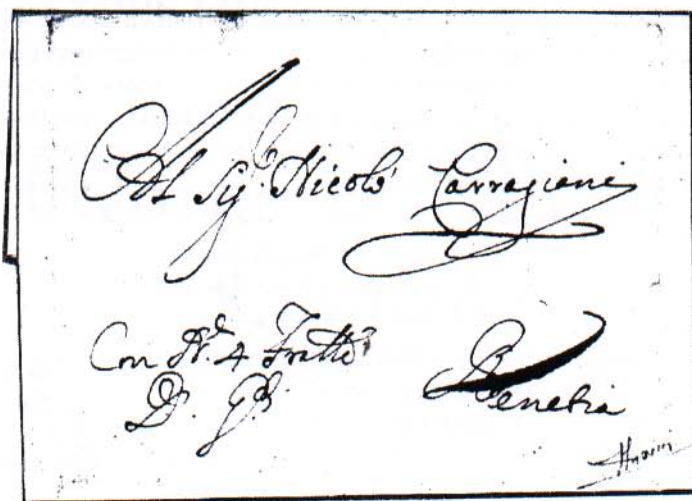 Al Sig.r Nicolò Carragiani
Con N.o 4
D. G.
Venetia